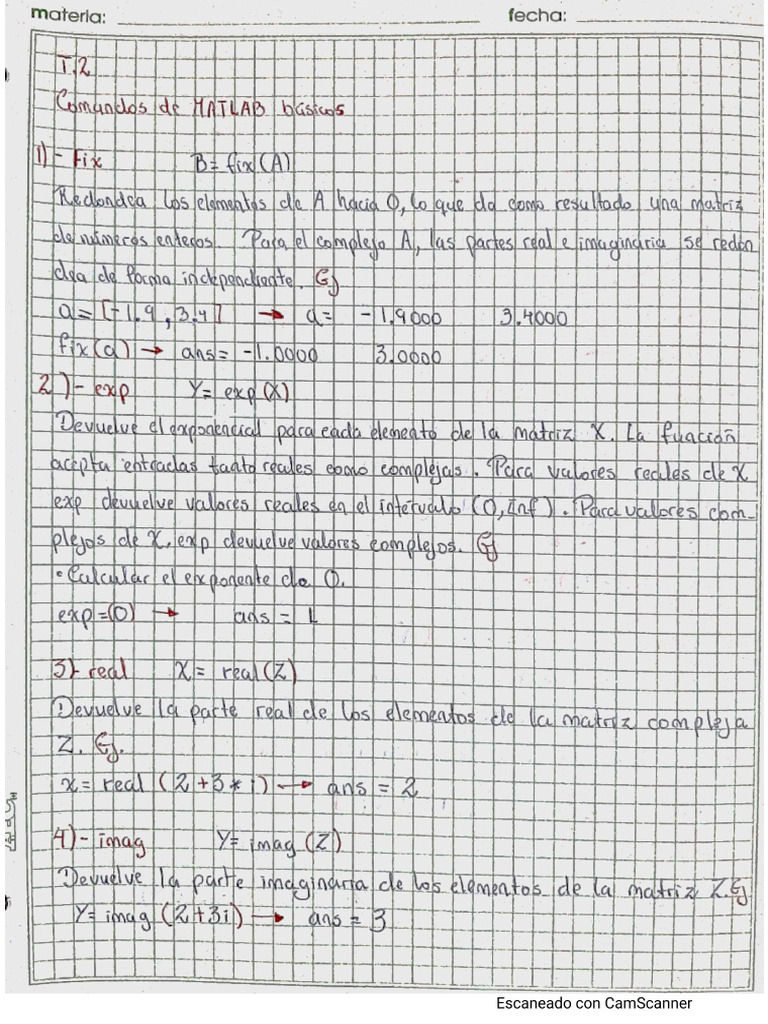 materia:
fecha:
T.2
Comandos de MATLAB básicos
1)- Fix B= fix(A)
Redondea los elementos de A hacia 0, lo que da como resultado una matriz
de números enteros. Para el complejo A, las partes real e imaginaria se redon
dea de forma independiente. Ej
a= [-1.9 , 3.4] → a= -1.9000 3.4000
fix(a) → ans= -1.0000 3.0000
2)- exp Y= exp(X)
Devuelve el exponencial para cada elemento de la matriz X. La función
acepta entradas tanto reales como complejas. Para valores reales de X
exp devuelve valores reales en el intervalo (0,Inf). Para valores com-
plejos de X, exp devuelve valores complejos. Ej
• Calcular el exponente de 0.
exp=(0) → ans = 1
3)- real X= real(Z)
Devuelve la parte real de los elementos de la matriz compleja
Z. Ej.
x= real (2+3*i) → ans = 2
4)- imag Y= imag (Z)
Devuelve la parte imaginaria de los elementos de la matriz Z. Ej
Y= imag (2+3i) → ans = 3
Escaneado con CamScanner